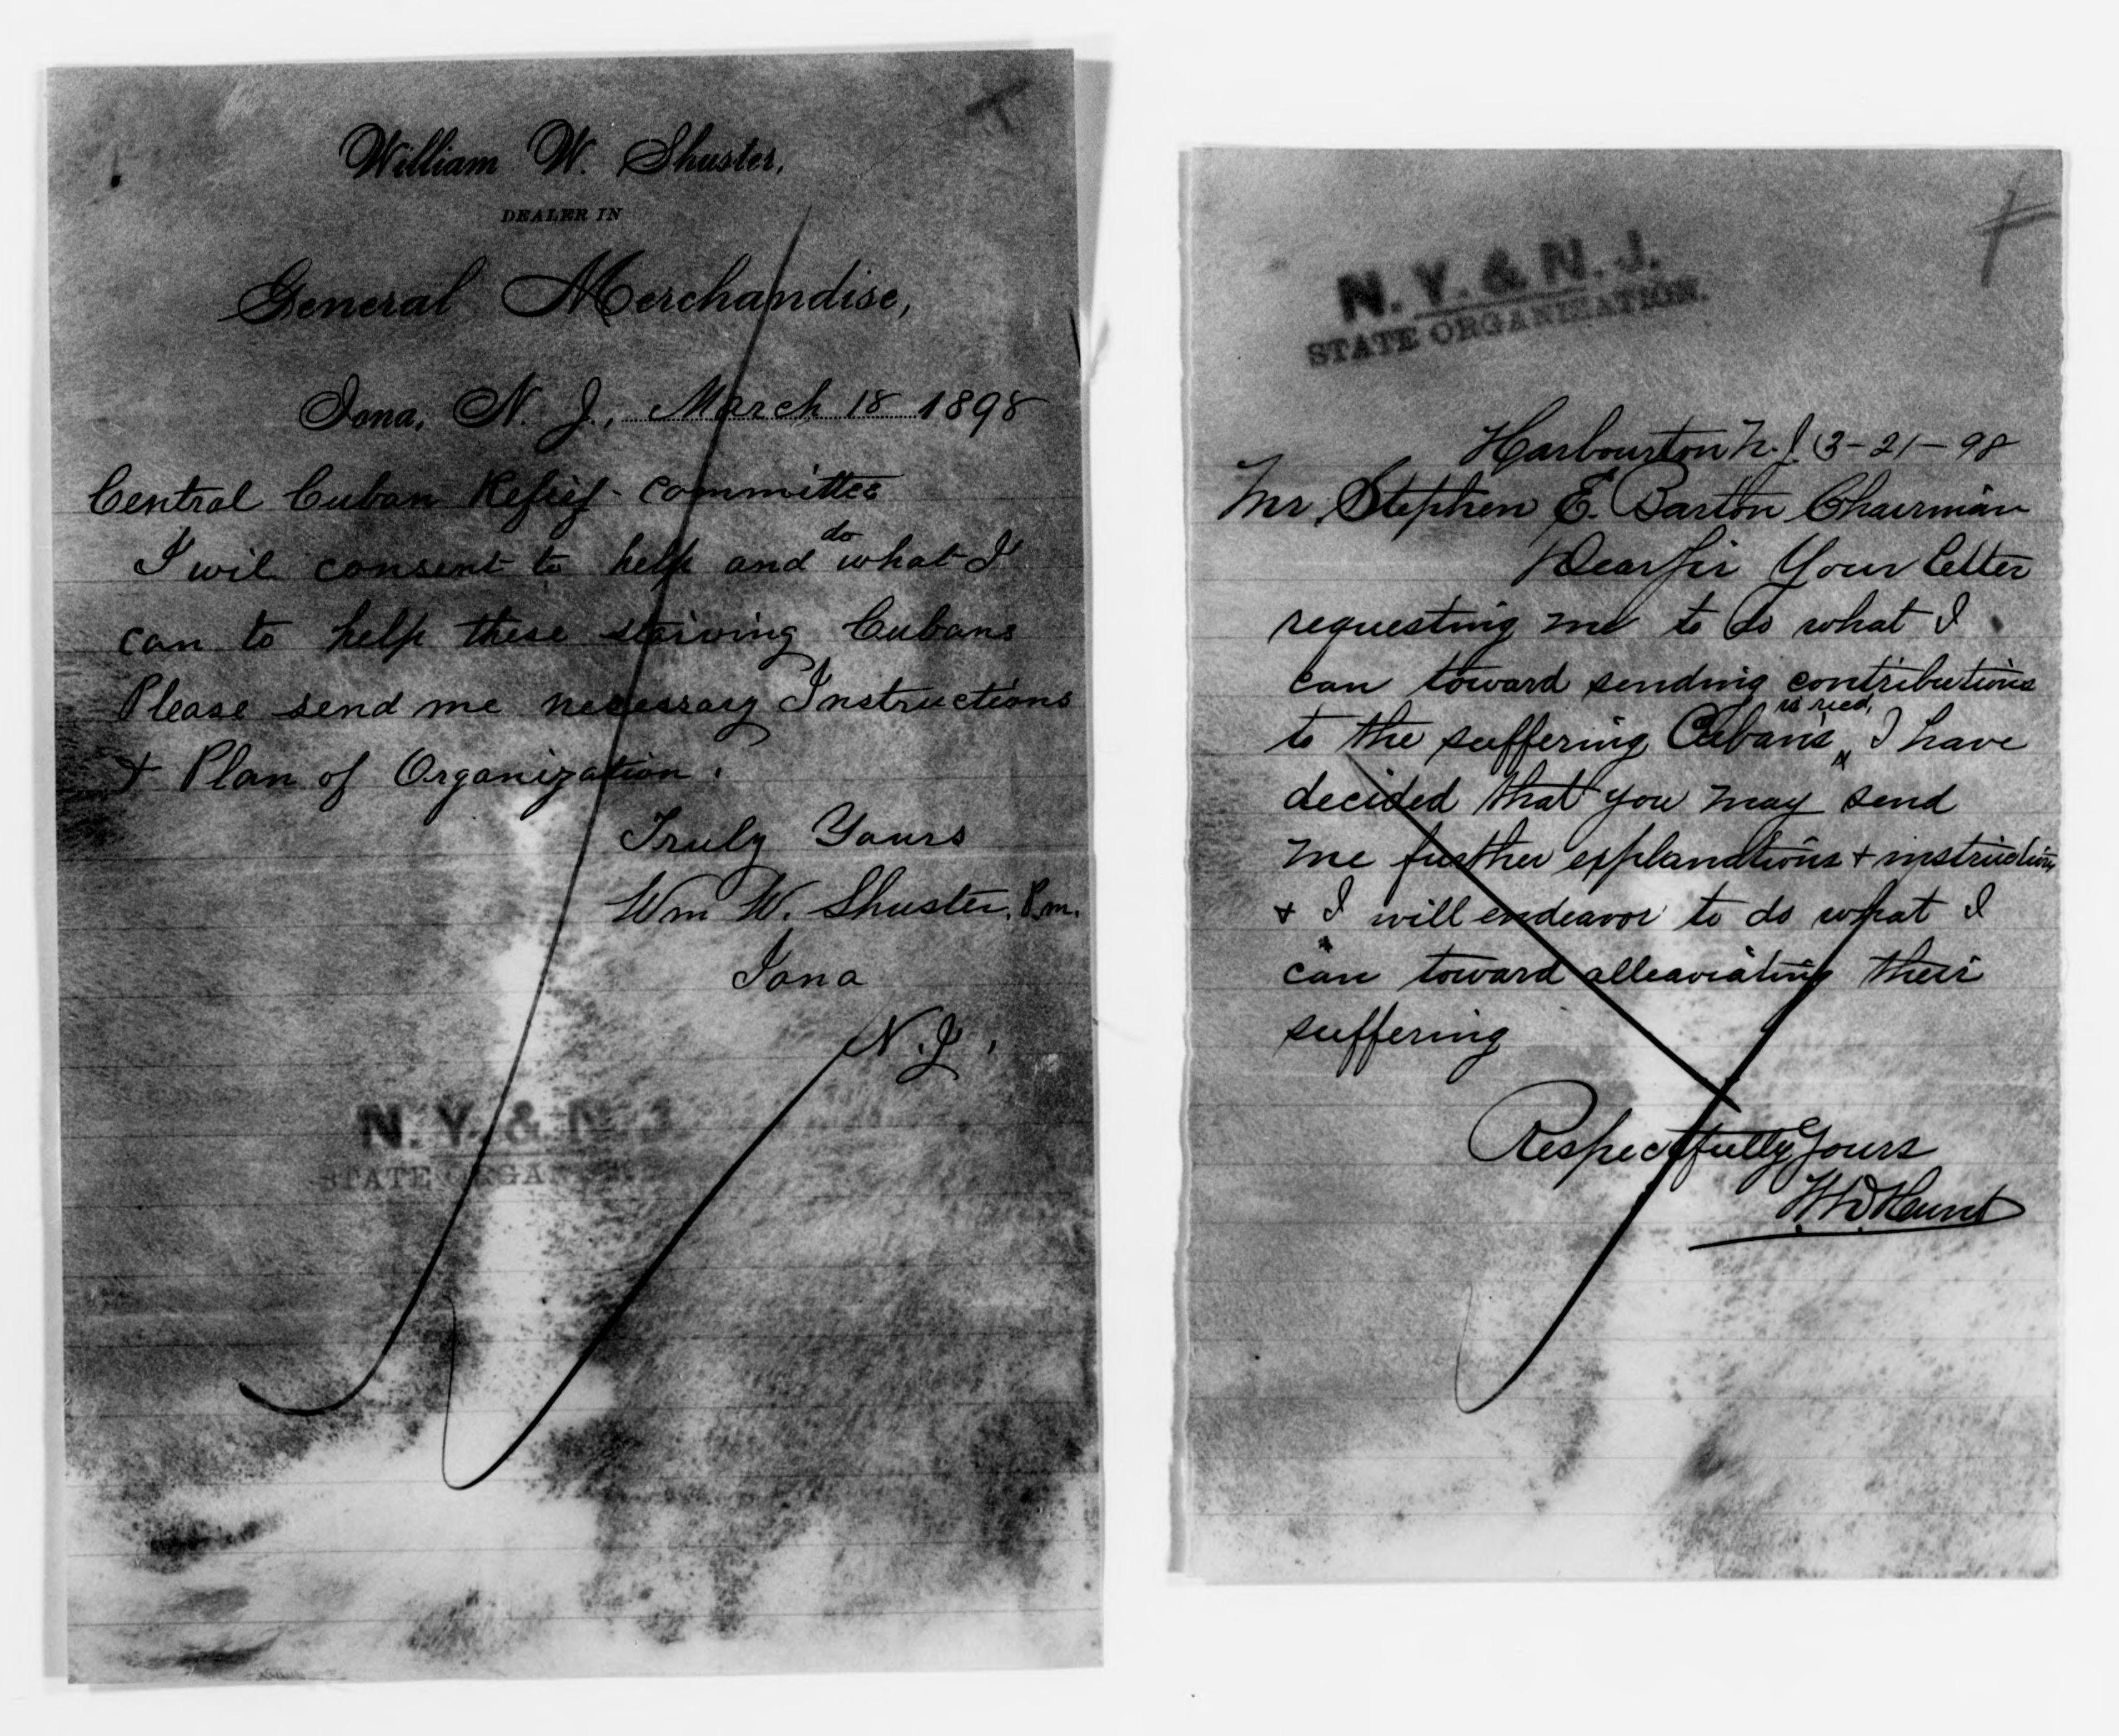 William W. Shuster,
DEALER IN
General Merchandise,
Iona, N. J., March 18 1898
Central Cuban Relief Committee
I wil consent to help and do what I
can to help these starving Cubans
Please send me necessary Instructions
& Plan of Organization.
Truly Yours
Wm W. Shuster, P.m.
Iona
N.J.
N. Y. & N. J.
STATE ORGAN
N. Y. & N. J.
STATE ORGANIZATION.
Harbourton N.J. 3-21-98
Mr. Stephen E. Barton Chairman
Dear Sir Your letter
requesting me to do what I
can toward sending contributions
to the suffering Cubans is recd, I have
decided that you may send
me further explanations & instructions
& I will endeavor to do what I
can toward alleaviating their
suffering
Respectfully Yours
Hunt